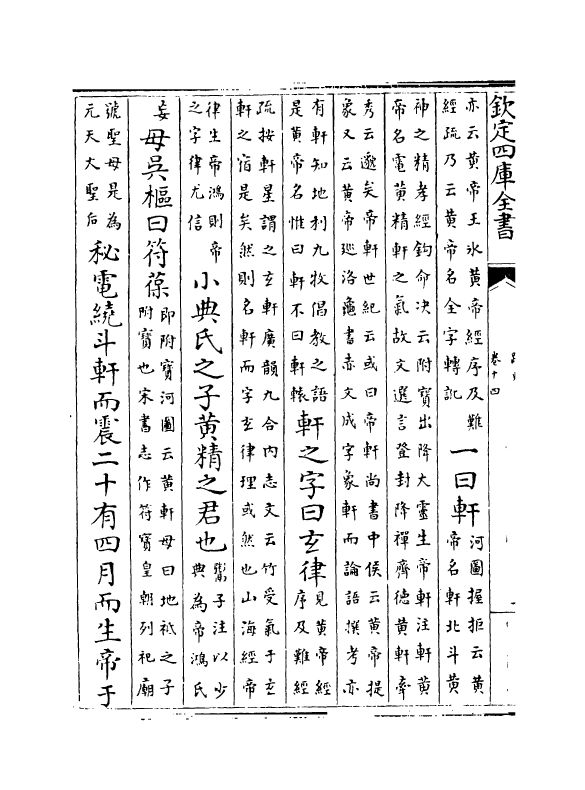 欽定四庫全書
卷十四
亦云黄帝王氷黄帝經序及難
經疏乃云黄帝名全字轉訛
一曰軒
河圖握拒云黄
帝名軒北斗黄
神之精孝經鈎命决云附寳出降大靈生帝軒注軒黄
帝名電黄精軒之氣故文選言登封降禪齊德黄軒牽
秀云邈矣帝軒世紀云或曰帝軒尚書中候云黄帝提
象又云黄帝廵洛龜書赤文成字象軒而論語撰考亦
有軒知地利九牧倡教之語
是黄帝名惟曰軒不曰軒轅
軒之字曰玄律
見黄帝經
序及難經
疏按軒星謂之玄軒廣韻九合内志文云竹受氣于玄
軒之宿是矣然則名軒而字玄律理或然也山海經帝
律生帝鴻則帝
之字律尤信
小典氏之子黄精之君也
鬻子注以少
典為帝鴻氏
妄
母吳樞曰符葆
即附寳河圖云黄軒母曰地祗之子
附寳也宋書志作符寳皇朝列祀廟
號聖母是為
元天大聖后
秘電繞斗軒而震二十有四月而生帝于